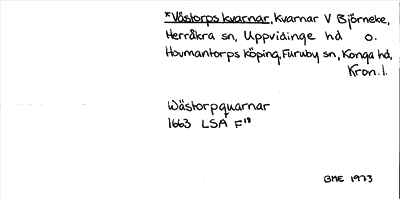 *Västorps kvarnar, Kvarnar V Björneke,
Herråkra sn, Uppvidinge hd o.
Hovmantorps köping, Furuby sn, Konga hd,
Kron. l.
Wästorpquarnar
1663 LSA F¹⁸
BME 1973